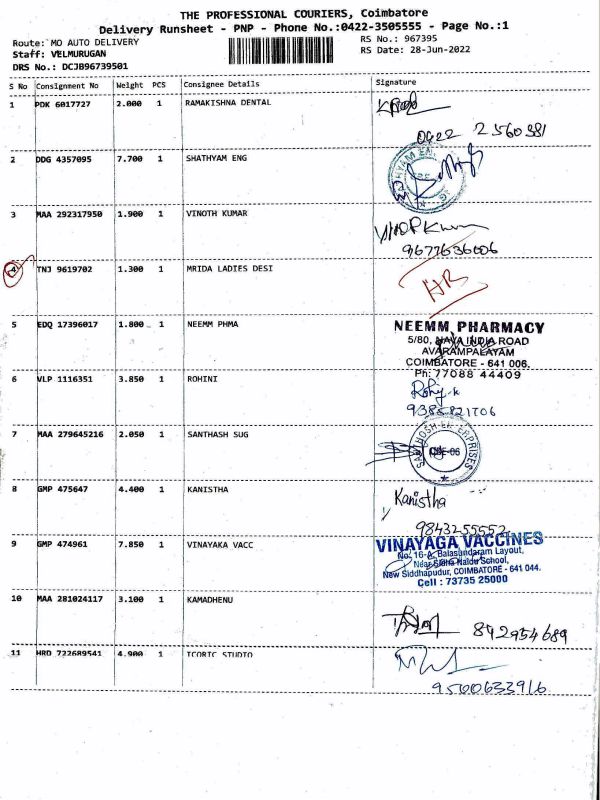 THE PROFESSIONAL COURIERS, Coimbatore
Delivery Runsheet - PNP - Phone No.:0422-3505555 - Page No.:1
Route: MO AUTO DELIVERY
RS No.: 967395
Staff: VELMURUGAN
RS Date: 28-Jun-2022
DRS No.: DCJB96739501
S No Consignment No Weight PCS Consignee Details Signature
1 PDK 6017727 2.000 1 RAMAKISHNA DENTAL
0422 2560381
2 DDG 4357095 7.700 1 SHATHYAM ENG
3 MAA 292317950 1.900 1 VINOTH KUMAR
9677636006
4 TNJ 9619702 1.300 1 MRIDA LADIES DESI
5 EDQ 17396017 1.800 1 NEEMM PHMA
NEEMM PHARMACY
5/80, NAVA INDIA ROAD
AVARAMPALAYAM
COIMBATORE - 641 006.
Ph: 77088 44409
6 VLP 1116351 3.850 1 ROHINI
9385821706
7 MAA 279645216 2.050 1 SANTHASH SUG
SANTHOSH ENTERPRISES
CBE-06
8 GMP 475647 4.400 1 KANISTHA
Kanistha
9843255552
9 GMP 474961 7.850 1 VINAYAKA VACC
VINAYAGA VACCINES
No: 16-A, Balasundaram Layout,
Near Sidha Naidu School,
New Siddhapudur, COIMBATORE - 641 044.
Cell : 73735 25000
10 MAA 281024117 3.100 1 KAMADHENU
842954689
11 HRD 722689541 4.900 1 ICORIC STUDIO
9500633916